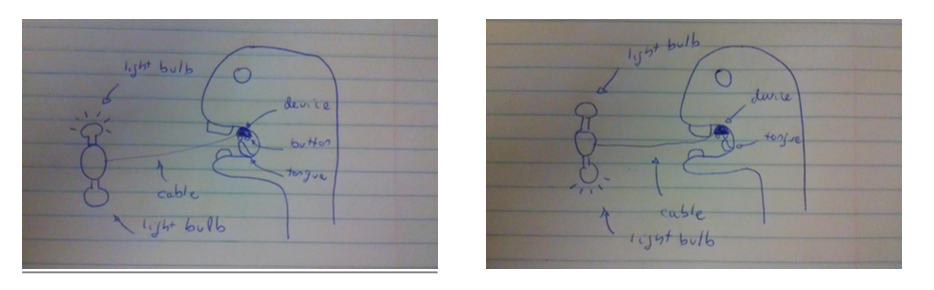 light bulb
device
button
tongue
cable
light bulb
light bulb
device
tongue
cable
light bulb